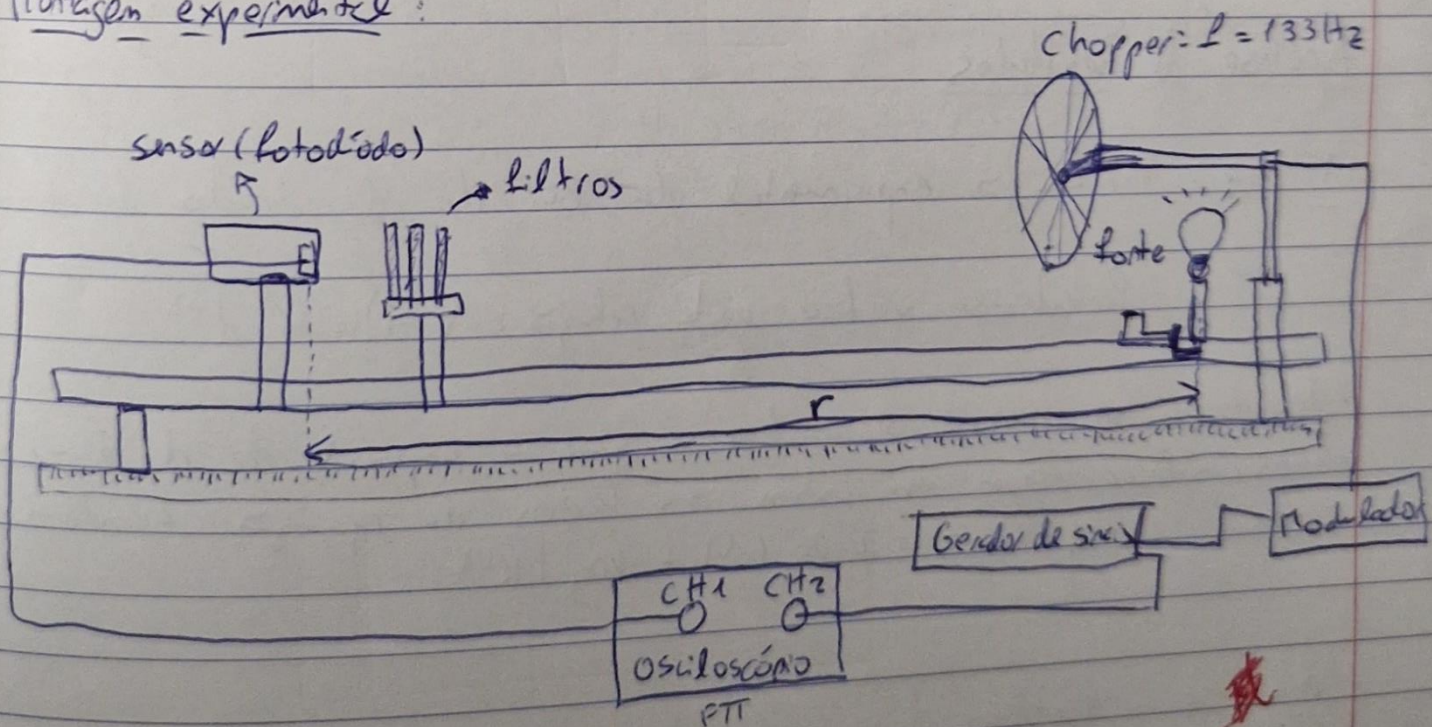 Montagem experimental:
Chopper: f = 133Hz
sensor (fotodíodo)
filtros
fonte
r
Gerador de sinais
Modulador
CH1 CH2
Osciloscópio